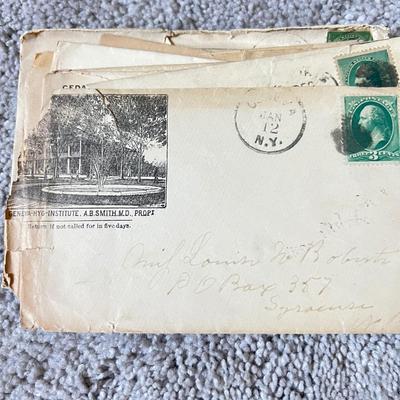 CEDA
GENEVA
JAN
12
N.Y.
U.S. POSTAGE
THREE CENTS
3
GENEVA-HYG-INSTITUTE, A.B. SMITH M.D., PROPR
Return if not called for in five days.
Miss Louise N Roberts
PO Box 357
Syracuse